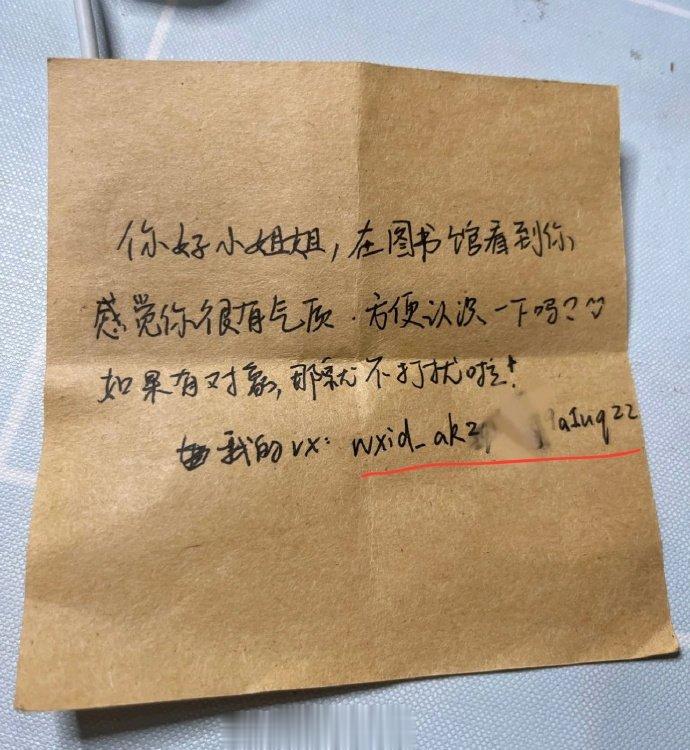 你好小姐姐，在图书馆看到你，
感觉你很有气质．方便认识一下吗？
如果有对象，那就不打扰啦！
我的vx：wxid_akz 9a1uq22